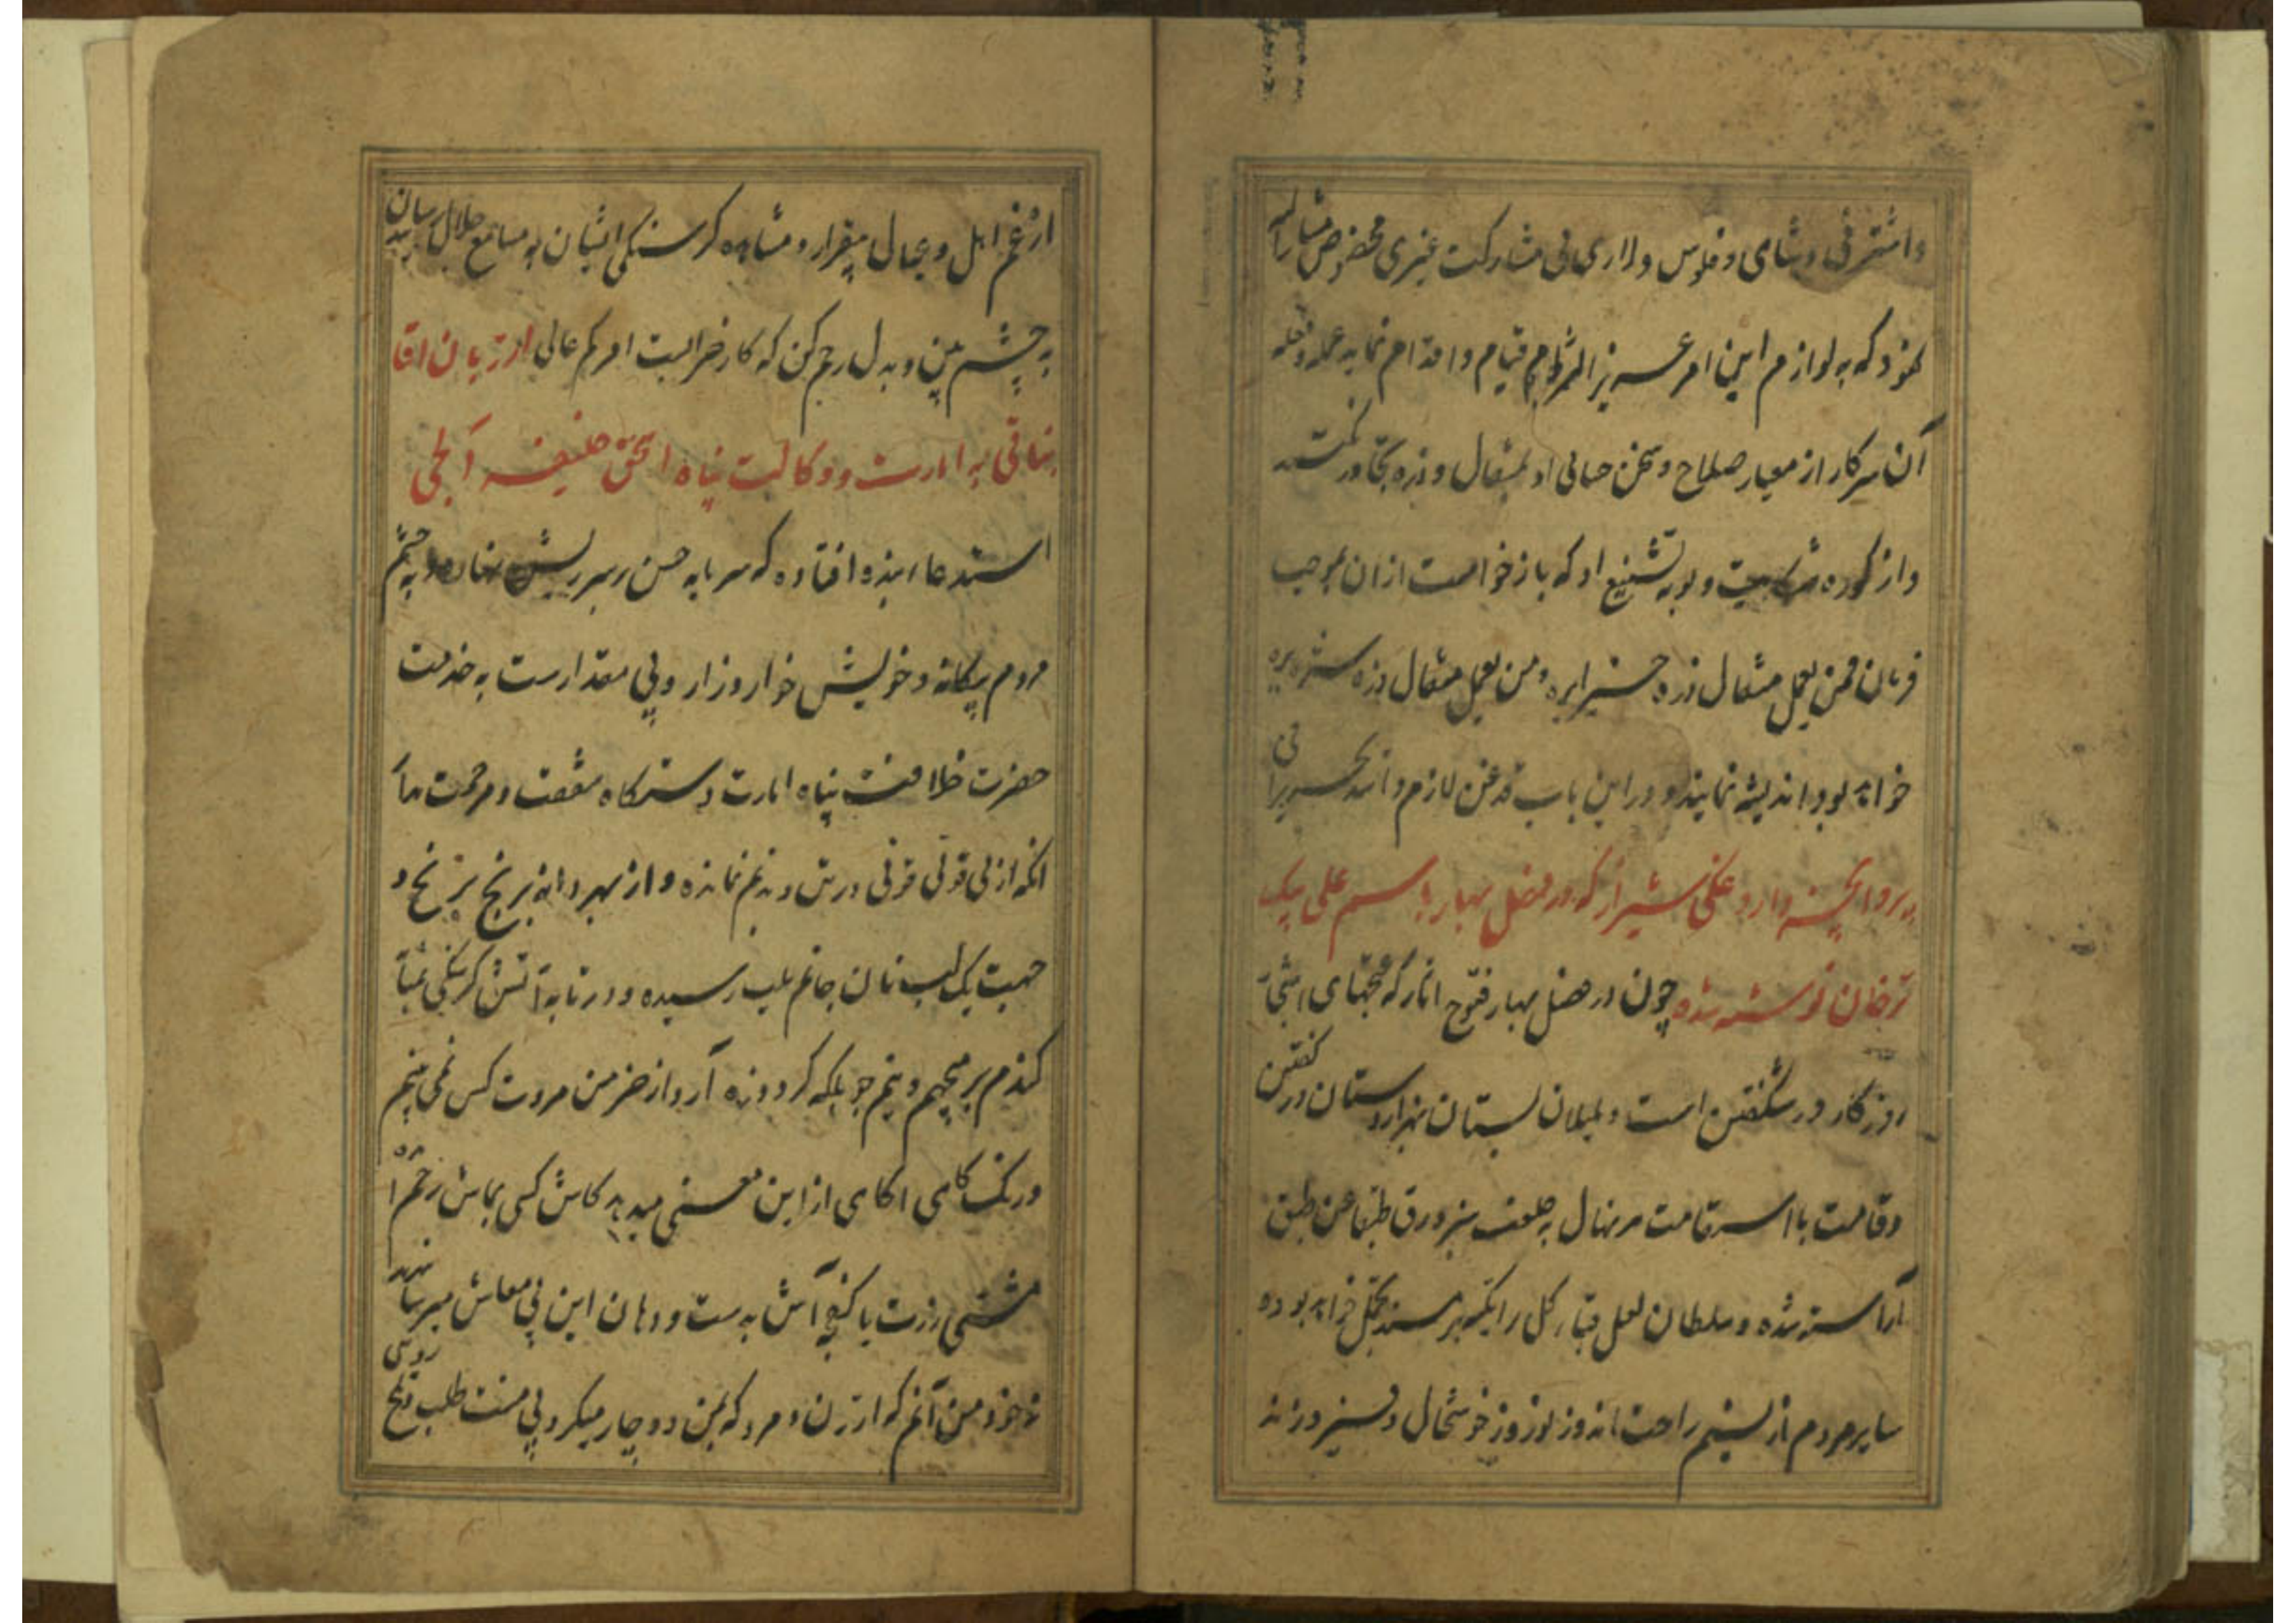 واشرفی و شاهی و فلوس و لاری بی مشارکت غیری مخصوص مشارالیه
نمود که به لوازم این امر عسیر المرام قیام و اقدام نماید عمله و فعله
آن سرکار از معیار صلاح و سخن حسابی او بمثقال و ذره تجاوز نکنند
واز کوره و بوته تشنیع او که بازخواست ازان بموجب
فرمان فمن یعمل مثقال ذره خیرا یره و من یعمل مثقال ذره شرا یره
خواهد بود اندیشه نمایند و دراین باب قدغن لازم دانند تحریرا فی
پروانچه داروغکی شیراز که در فصل بهار باسم علی بیک
ترخان نوشته شده چون در فصل بهار فتوح انار که غنچهای اشجار
روزکار در شکفتن است و بلبلان بستان هزاردستان در کفتن
وقامت با استقامت هر نهال به خلعت سبز ورق طبقا عن طبق
آراسته شده و سلطان لعل قبا کل را تکیه بر مسند تجمل خواهد بوده
سایر مردم از نسیم راحت اندوز نوروز خوشحال و فیروزند
از غم اهل و عیال بیقرار و مشاهده کرسنکی ایشان به مسامع جلال رسانید
به چشم ببین و به دل رحم کن که کار خیر است امرکم عالی از زبان اقا
بنائی به امارت و وکالت پناه اسحق خلیفه آلجی
استدعاء بنده افتاده که سر بابه حسن بر سر ریش نهاده و به چشم
مردم بیکانه و خویش خوار و زار و بی مقدارست به خدمت
حضرت خلافت پناه امارت دستکاه شفقت و مرحمت مآب
انکه از بی قوتی قوتی در تن و بدنم نمانده و از بهر دانه برنج برنج و
جهت یک لب نان جانم بلب رسیده و در تابه آتش کرسنکی بمثابه
کندم بر میجهم و نیم جو بلکه کرد و ذره آرد از خرمن مروت کس نمی بینم
ورنک کاهی اکاهی از این معنی میدهد کاش کسی بماش رحم از راه
مشتی ذرت یا کفچه آش به دست و دهان این بی معاش میرسانید
نه خود من آنم که از زن و مرد که بمن دوچار میکرد بی منت طلب تلخ رویی